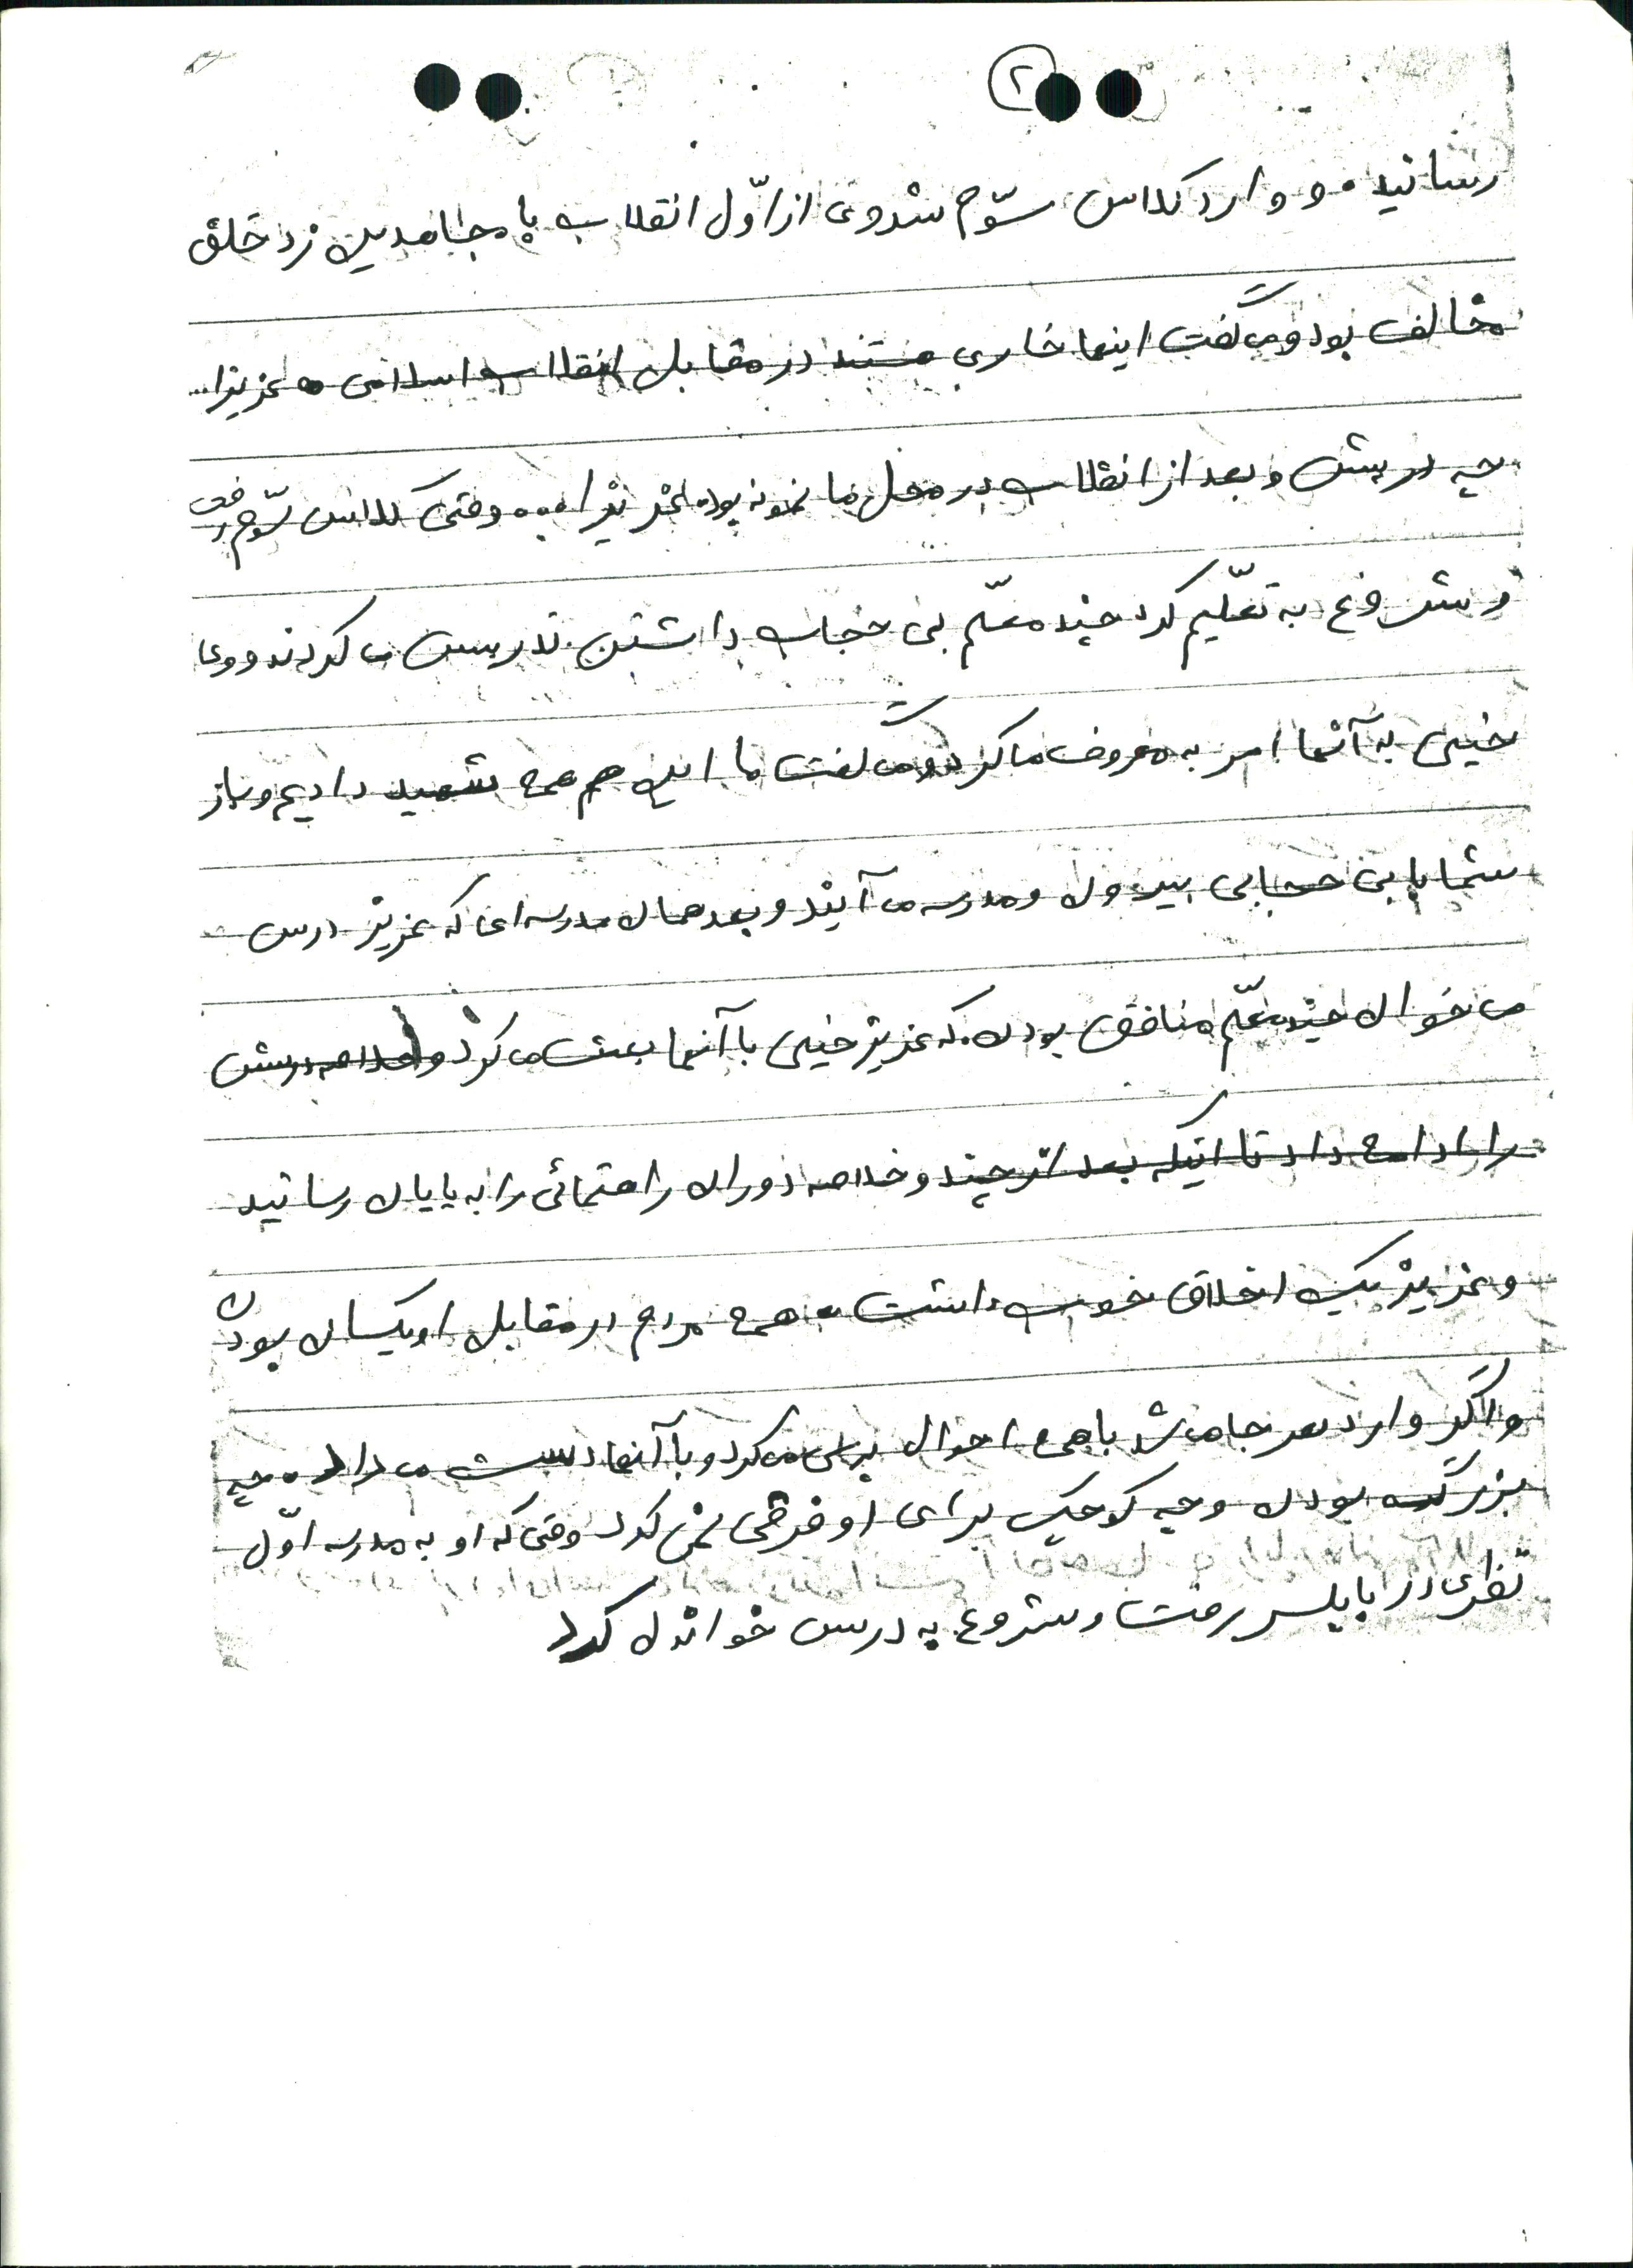 ۲
رسانید. و وارد کلاس سوّم شد وی از اوّل انقلاب با مجاهدین زد خلق
مخالف بود و می گفت اینها خاری هستند در مقابل انقلاب اسلامی ه عزیز از
چه در پیش و بعد از انقلاب در محل ما نمونه بود. عزیز از ... وقتی کلاس سوّم رفت
و شروع به تعلّیم کرد چند معلّم بی حجاب داشتن. تدریس می کردند و وی
خیلی به آنها امر به معروف ما کرد و می گفت ما این هم همه شهید دادیم و باز
شما با بی حجابی بیرون و مدرسه می آیند و بعد همان مدرسه ای که عزیز درس
می خوان چند معلّم منافق بودن. که عزیز خیلی با آنها بحث می کرد و خلاصه درسش
را ادامه داد تا اینکه بعد از چند و خلاصه دوران راهنمائی را به پایان رسانید
و عزیز یک اخلاق خوب داشت که همه مردم در مقابل او یکسان بودن
و اگر وارد هر جا می شد با همه احوال پرسی می کرد و با آنها دست می داد. چه
بزرگ بودن و چه کوچک برای او فرقی نمی کرد وقتی که او به مدرسه اوّل
نظری در بابلسر رفت و شروع به درس خواندن کرد